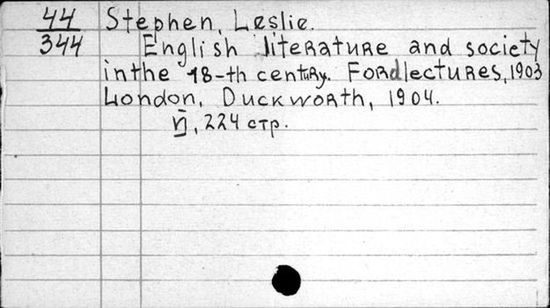 44 Stephen, Leslie.
344 English literature and society
in the 18-th century. Ford lectures, 1903
London, Duckworth, 1904.
224 стр.